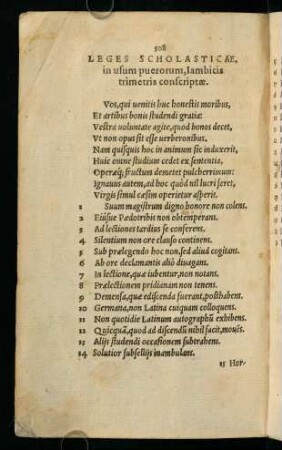 508
LEGES SCHOLASTICAE,
in usum puerorum, Iambicis
trimetris conscriptæ.
Vos, qui uenitis huc honestis moribus,
Et artibus bonis studendi gratia:
Vestra uoluntate agite, quod bonos decet,
Vt non opus sit esse uerberonibus.
Nam quisquis hoc in animum sic induxerit,
Huic omne studium cedet ex sententia,
Operæq́; fructum demetet pulcherrimum:
Ignauus autem, ad hoc quòd nil lucri feret,
Virgis simul cæsim operietur asperis.
1 Suum magistrum digno honore non colens.
2 Eiúsue Pædotribis non obtemperans.
3 Ad lectiones tardius se conferens.
4 Silentium non ore clauso continens.
5 Sub prælegendo hoc non, sed aliud cogitans.
6 Ab ore declamantis aliò diuagans.
7 In lectione, quæ iubentur, non notans.
8 Prælectionem pridianam non tenens.
9 Demensa, quæ ediscenda fuerant, posthabens.
10 Germana, non Latina cuiquam colloquens.
11 Non quotidie Latinum autographũ exhibens.
12 Quicquã, quod ad discendũ nihil facit, mouẽs.
13 Alijs studendi occasionem subtrahens.
14 Solutior subsellijs inambulans.
15 Hor-